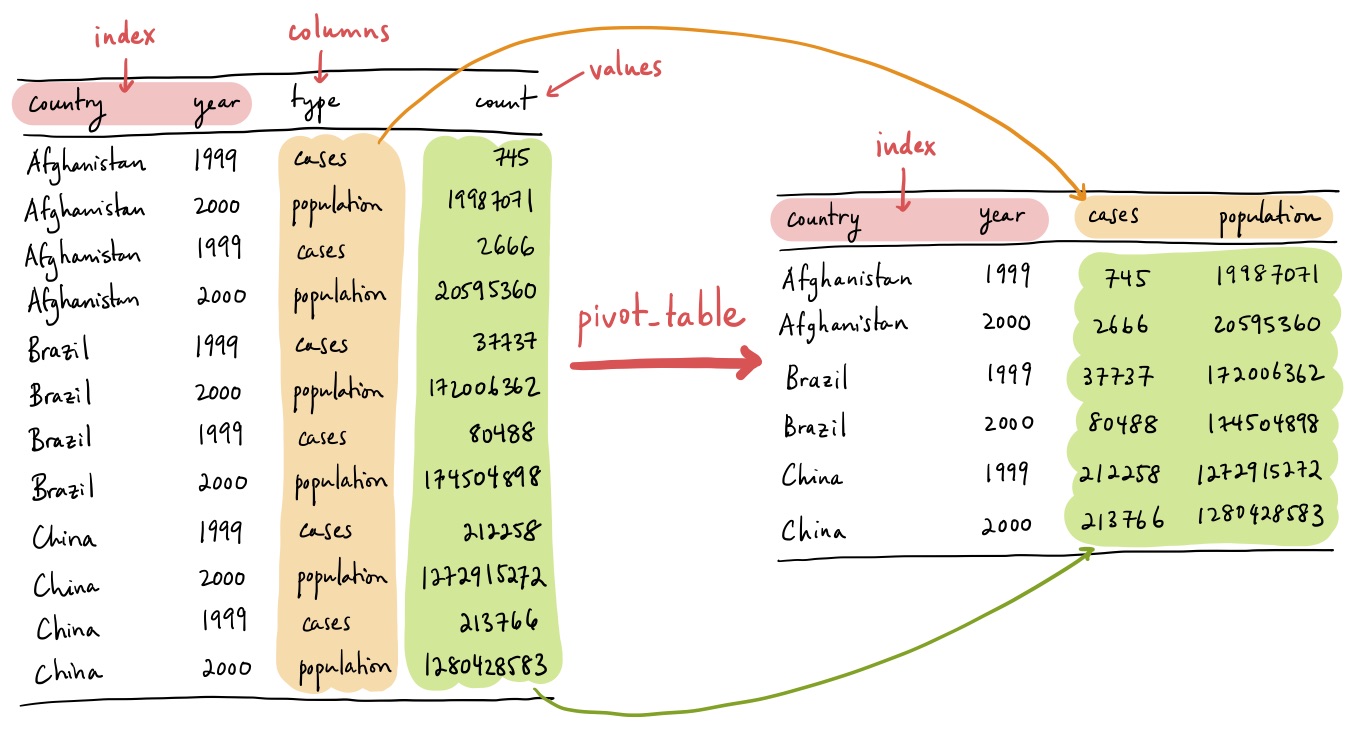 index columns
values
country year type count
Afghanistan 1999 cases 745
Afghanistan 2000 population 19987071
Afghanistan 1999 cases 2666
Afghanistan 2000 population 20595360
Brazil 1999 cases 37737
Brazil 2000 population 172006362
Brazil 1999 cases 80488
Brazil 2000 population 174504898
China 1999 cases 212258
China 2000 population 1272915272
China 1999 cases 213766
China 2000 population 1280428583
pivot_table
index
country year cases population
Afghanistan 1999 745 19987071
Afghanistan 2000 2666 20595360
Brazil 1999 37737 172006362
Brazil 2000 80488 174504898
China 1999 212258 1272915272
China 2000 213766 1280428583